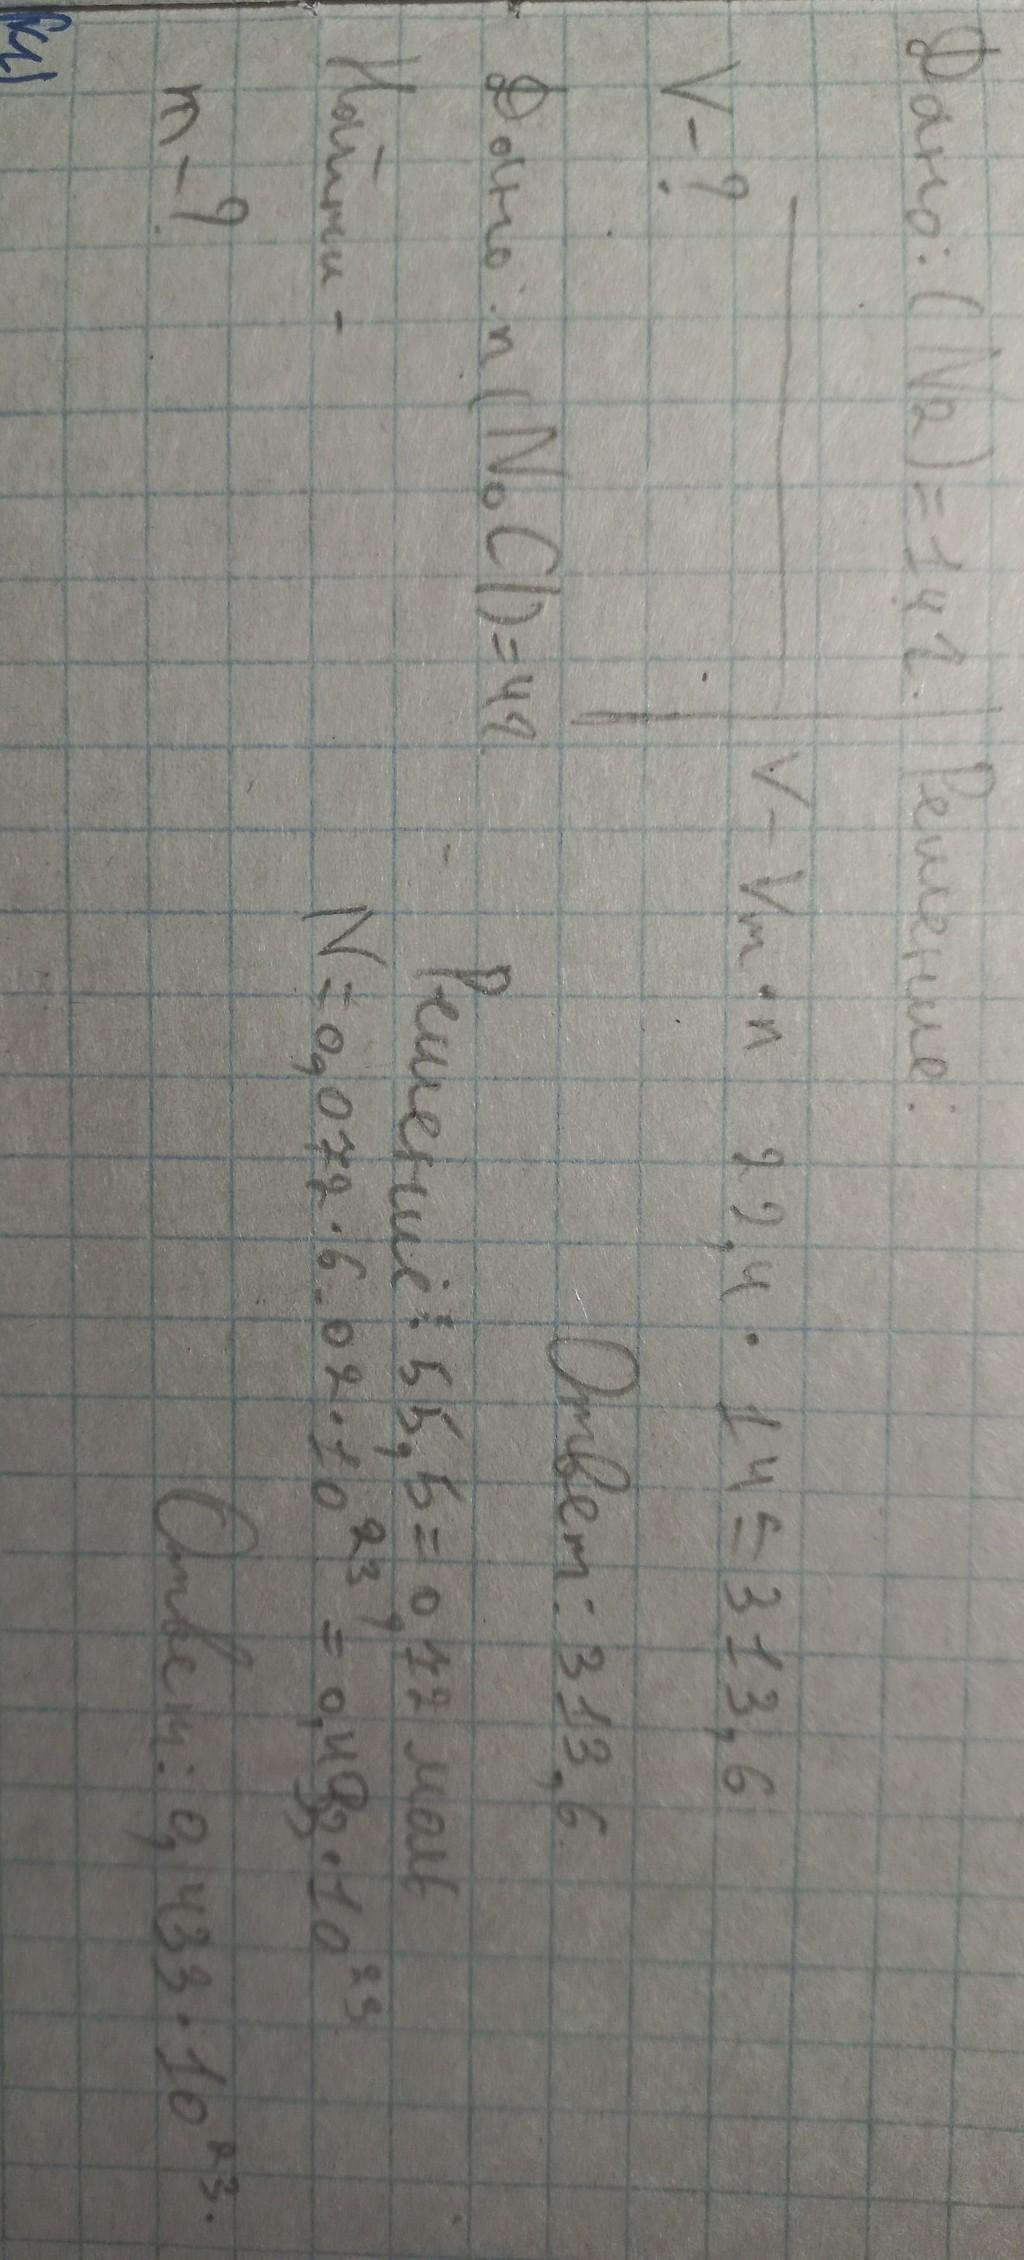 Дано: (N2)=14г. Решение:
V-?
V-Vm·n 22,4 · 14 = 313,6
Ответ: 313,6
Дано: n(NaCl)=4г.
Решение: 55,5=0,72 моль
Найти -
N=0,072·6.02·10²³=0,433·10²³
n-?
Ответ: 0,433·10²³.